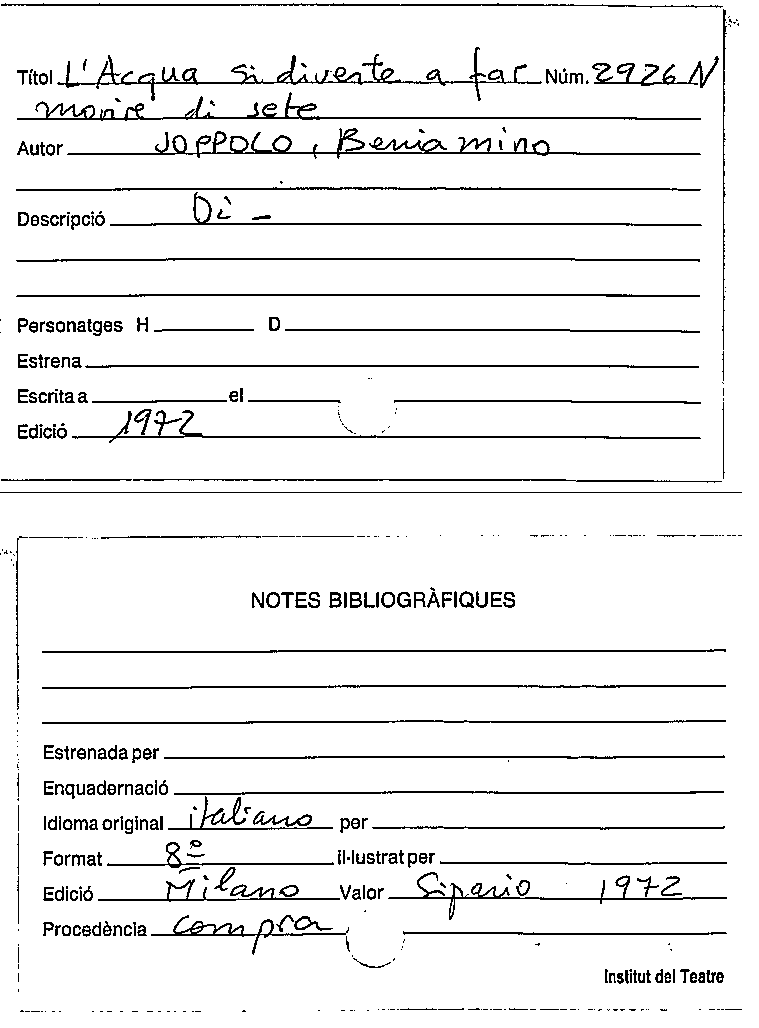 Títol L'Acqua si diverte a far Núm. 2926 N
morire di sete
Autor JOPPOLO, Beniamino
Descripció Di -
Personatges H D
Estrena
Escrita a el
Edició 1972
NOTES BIBLIOGRÀFIQUES
Estrenada per
Enquadernació
Idioma original italiano per
Format 8º il·lustrat per
Edició Milano Valor Sipario 1972
Procedència compra
Institut del Teatre